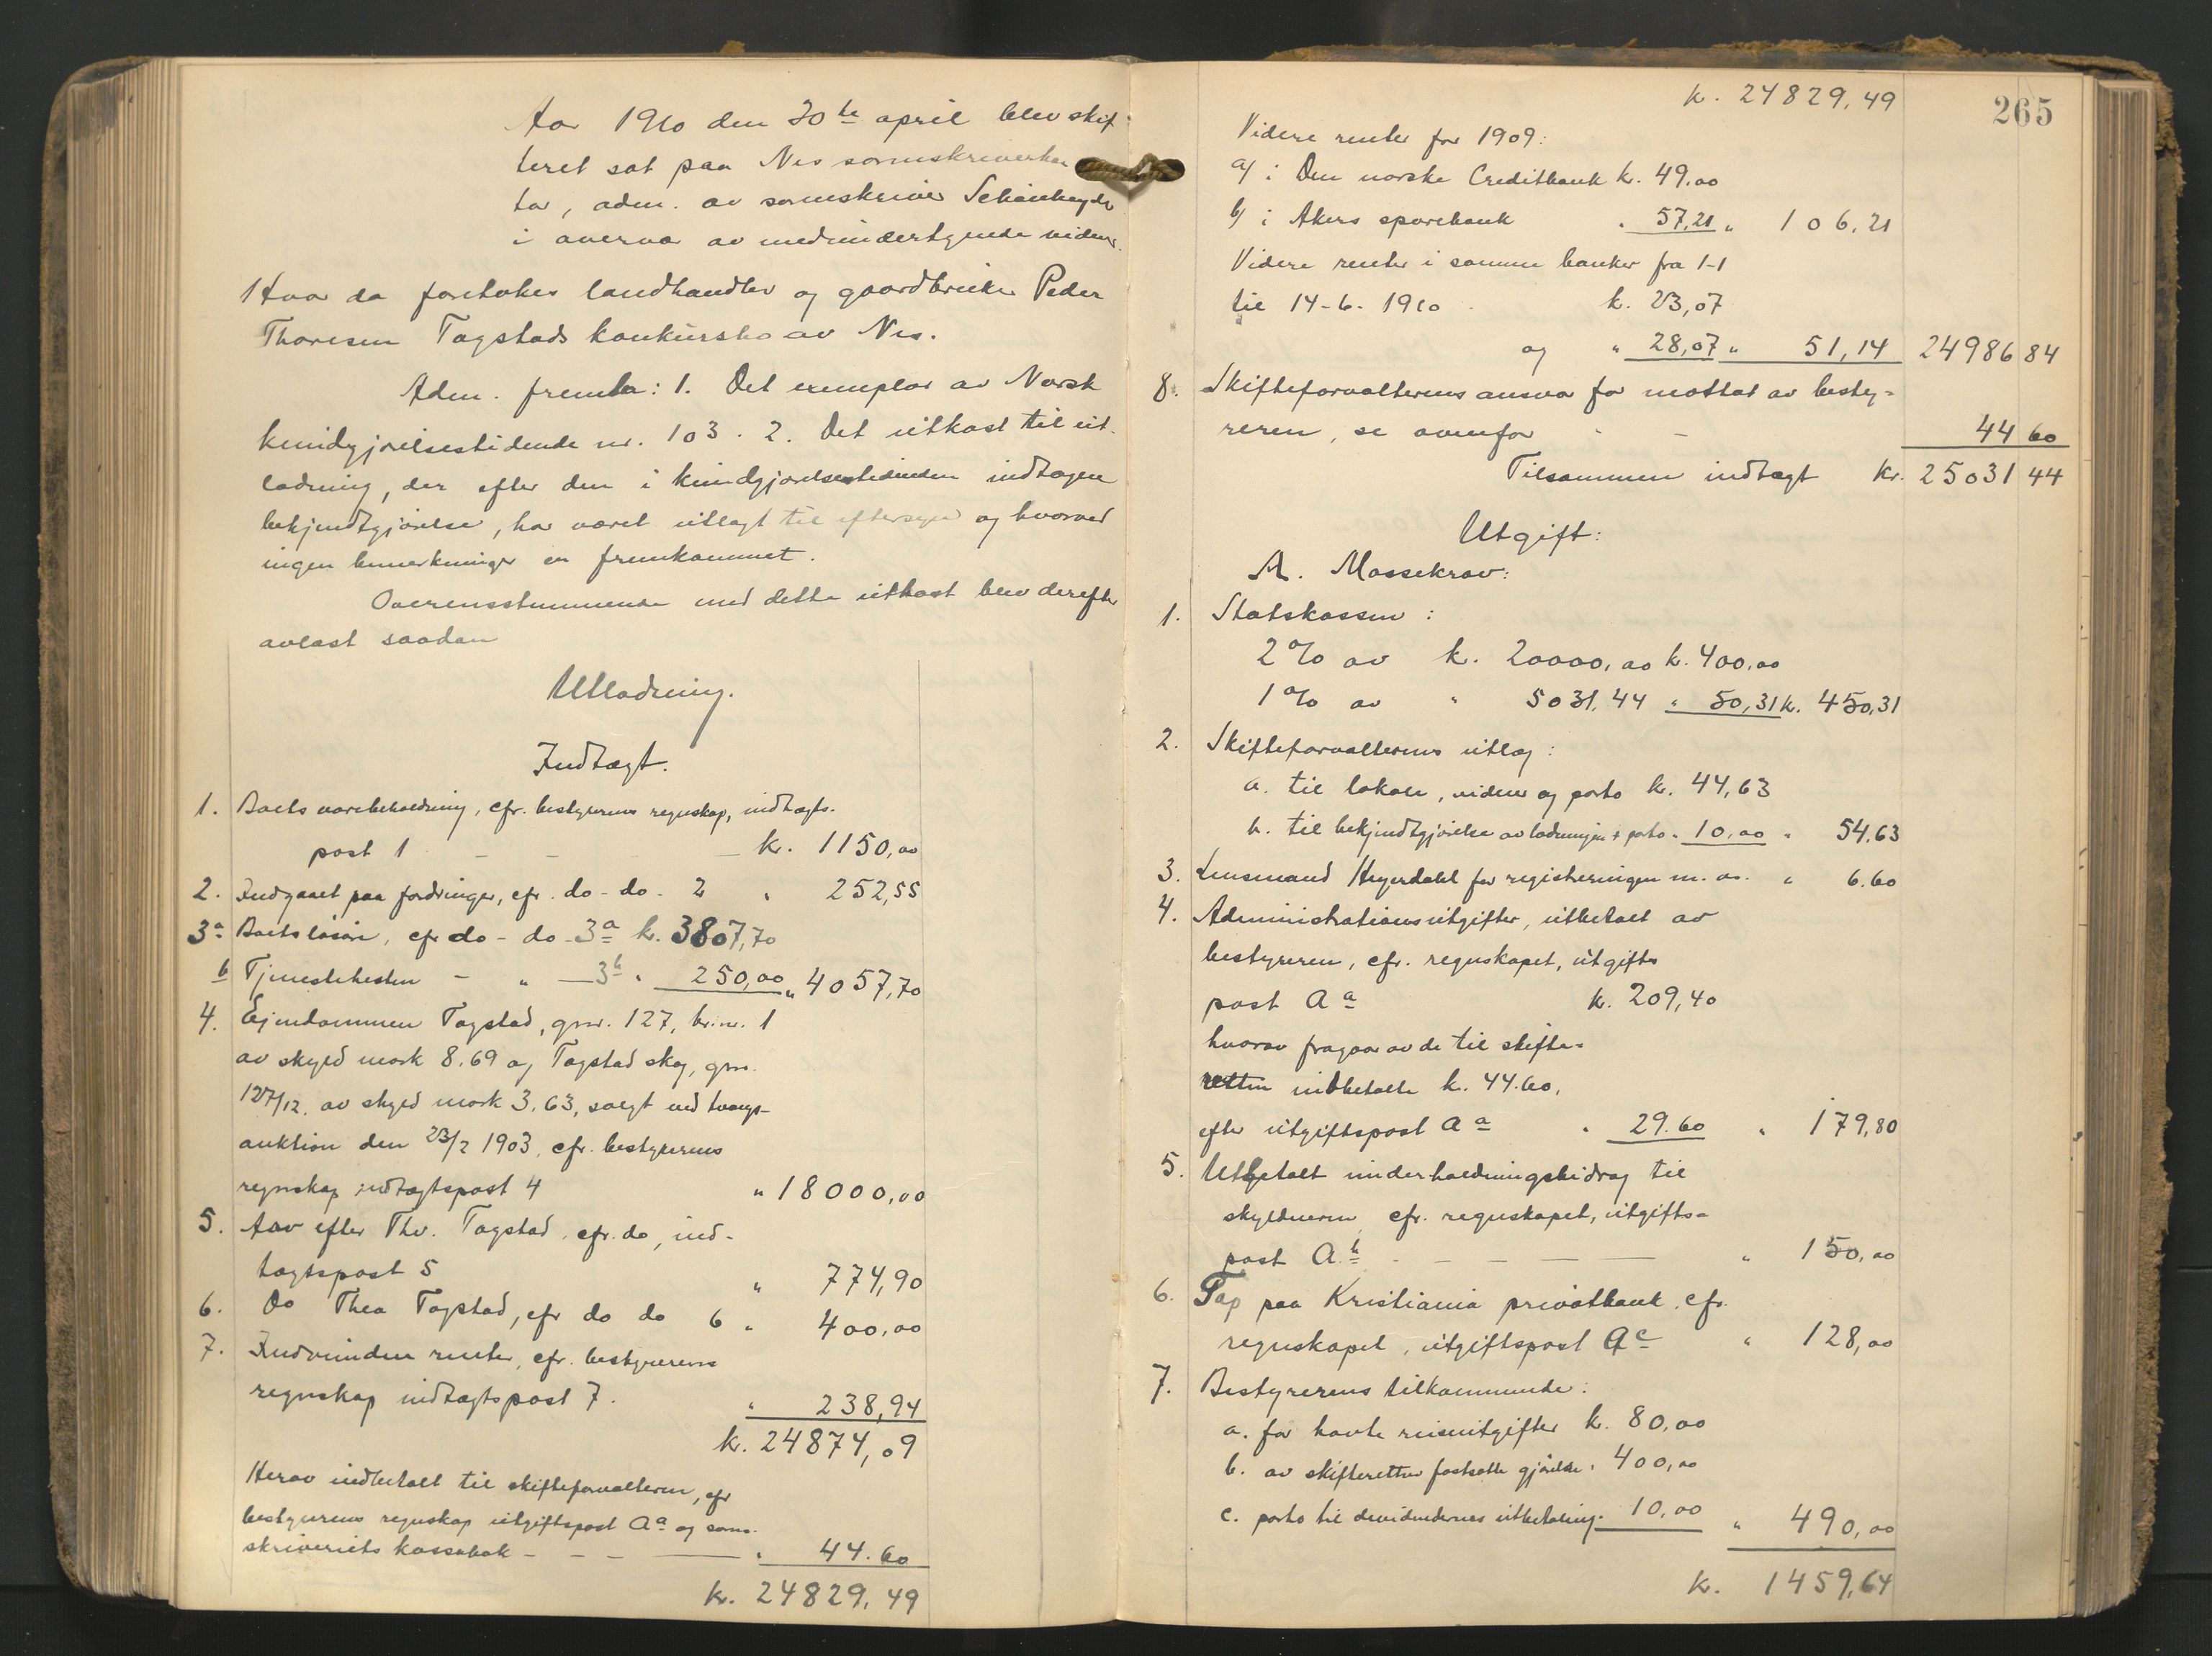 Aar 1910 den 30te april blev skif-
teret sat paa Nes sorenskriverkon
tor, adm. av sorenskriver Scheinheyde
i overvær av medundertegnede vidner.
Hvor da foretokes landhandler og gaardbruker Peder
Thoresen Tagstads konkursbo av Nes.
Adm. fremla: 1. Det exemplar av Norsk
kundgjørelsestidende nr. 103. 2. Det utkast til ut-
lodning, der efter den i kundgjørelsestidenden indtagne
bekjendtgjørelse, har været utlagt til eftersyn og hvorved
ingen bemerkninger er fremkommet.
Overensstemmende med dette utkast blev derefter
avlæst saadan
Utlodning.
Indtægt.
1. Boets varebeholdning, cfr. bestyrerens regnskap, indtægts-
post 1 - - - kr. 1150,00
2. Indgaaet paa fordringer, cfr. do - do - 2 " 252,55
3a Boets løsøre, cfr do - do - 3a k. 3807,70
b Tjenestehesten - " - 3b " 250,00 " 4057,70
4. Ejendommen Tagstad, gnr. 127, br.nr. 1
av skyld mark 8.69 og Tagstad skog, gnr.
127/12, av skyld mark 3.63, solgt ved tvangs-
auktion den 23/2 1903, cfr. bestyrerens
regnskap indtægtspost 4 " 18000,00
5. Arv efter Thv. Tagstad, cfr. do, ind-
tægtspost 5 " 774,90
6. Do Thea Tagstad, cfr do do 6 " 400,00
7. Indvundne renter, cfr. bestyrerens
regnskap indtægtspost 7. " 238,94
k. 24874,09
Herav indbetalt til skifteforvalteren, cfr
bestyrerens regnskap utgiftspost Aa og soren-
skriveriets kassabok - - - " 44.60
kr. 24829,49
265
k. 24829,49
Videre renter for 1909:
a/ i Den norske Creditbank k. 49,00
b/ i Akers sparebank " 57,21 " 106,21
Videre renter i samme banker fra 1-1
til 14-6-1910 k. 23,07
og " 28,07 " 51,14 24986 84
8. Skifteforvalterens ansvar for mottat av besty-
reren, se ovenfor - - 44 60
Tilsammen indtægt kr. 25031 44
Utgift:
A. Massekrav:
1. Statskassen:
2 % av k. 20000,00 k. 400,00
1 % av " 5031,44 " 50,31 k. 450,31
2. Skifteforvalterens utlæg:
a. til lokale, vidner og porto k. 44,63
b. til bekjendtgjørelse av lodningen + porto " 10,00 " 54.63
3. Lensmand Heyerdahl for registreringen m. v. " 6.60
4. Administrationsutgifter, utbetalt av
bestyreren, cfr. regnskapet, utgifts
post Aa k. 209,40
hvorav fragaar av de til skifte-
retten indbetalte k. 44.60,
efter utgiftspost Aa " 29.60 " 179,80
5. Utbetalt underholdningsbidrag til
skyldneren cfr. regnskapet, utgifts-
post Ab - - - " 150,00
6. Tap paa Kristiania privatbank, cfr.
regnskapet, utgiftspost Ac " 128,00
7. Bestyrerens tilkommende:
a. for havte reiseutgifter k. 80,00
b. av skifteretten fastsatte gjørelse " 400,00
c. porto til dividendernes utbetaling " 10,00 " 490,00
k. 1459,64